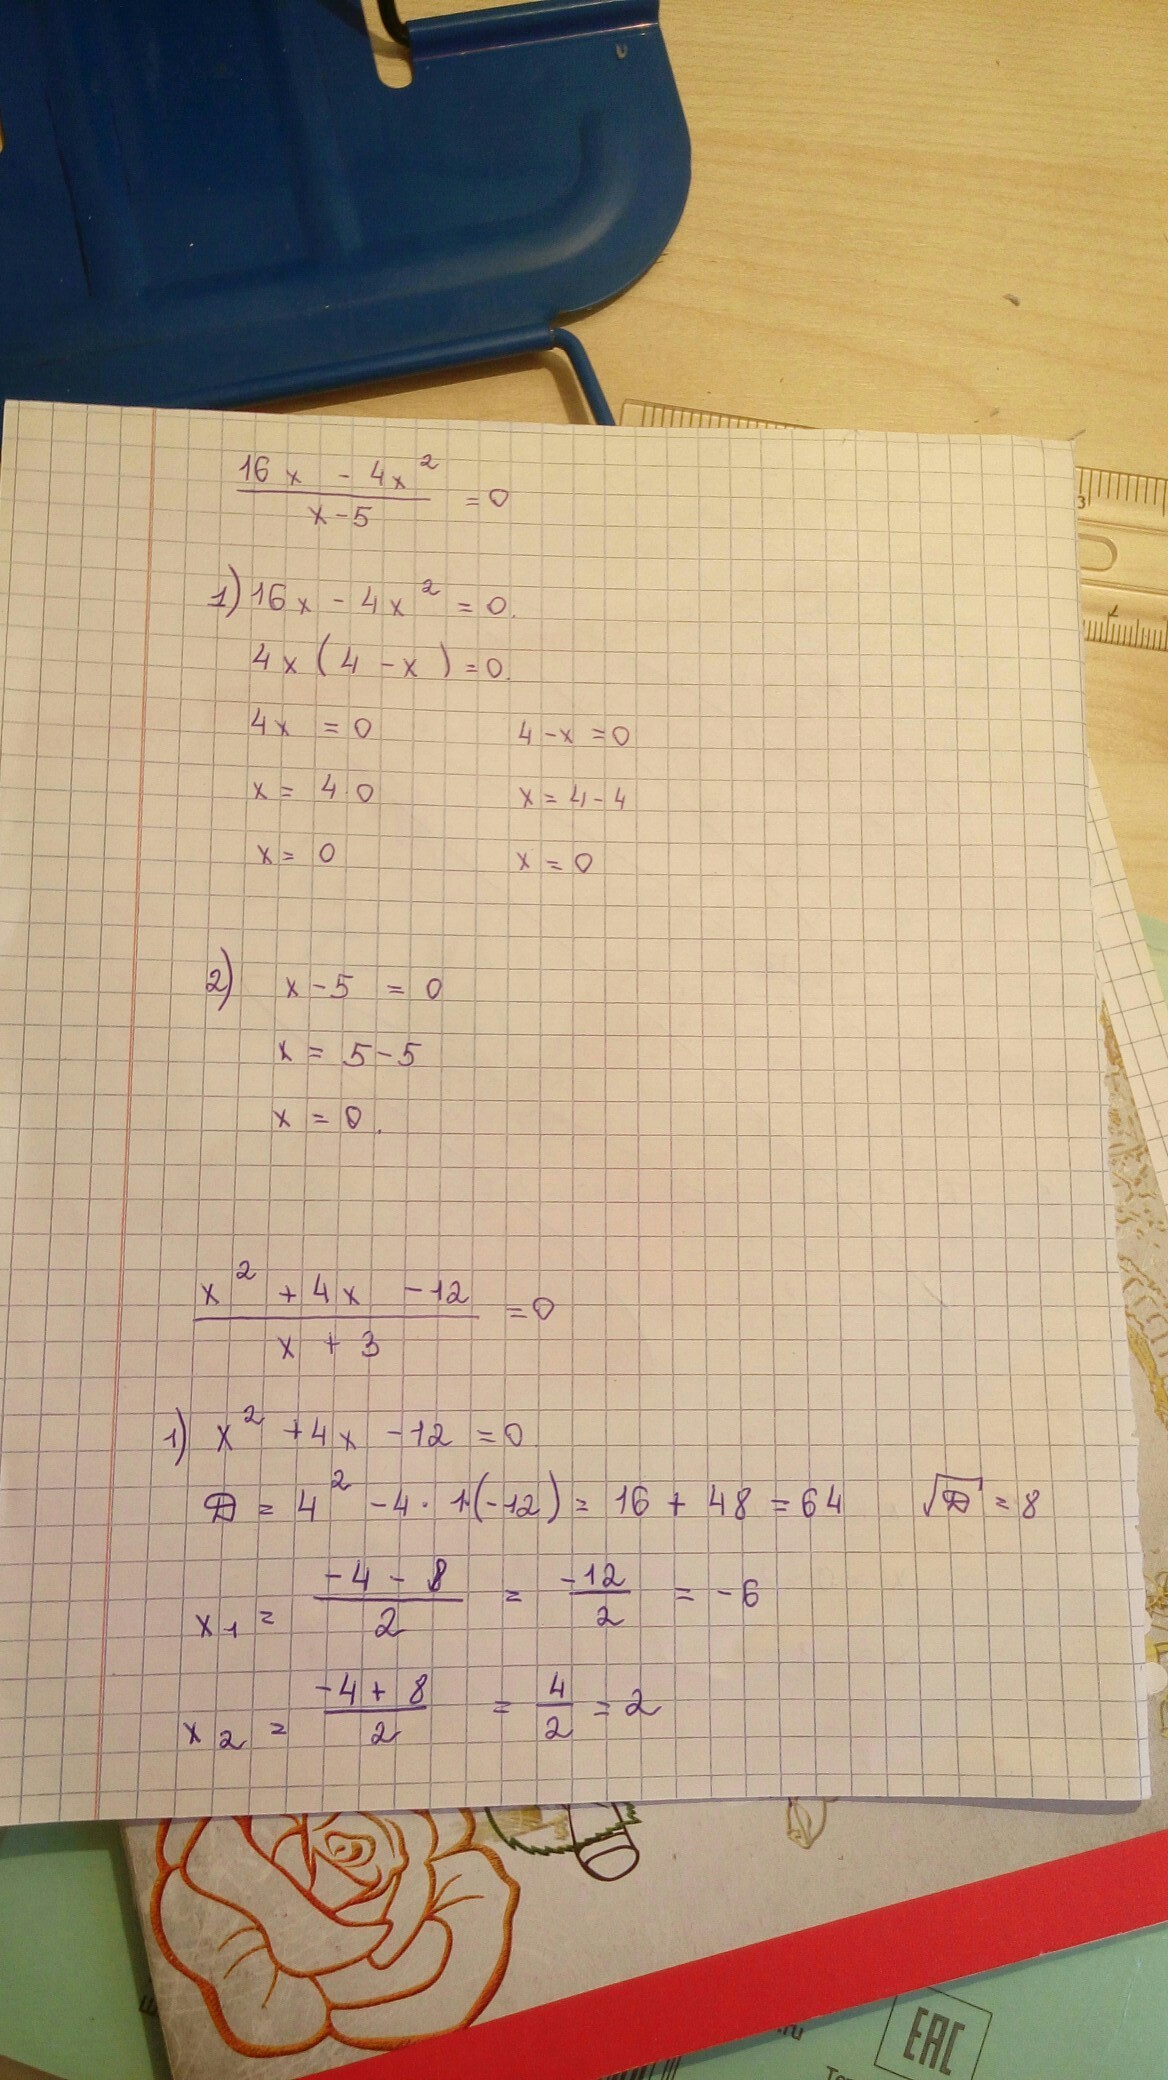 16x - 4x²
x-5
= 0
1) 16x - 4x² = 0.
4x (4 - x) = 0.
4x = 0 4 - x = 0
x = 4 0 x = 4 - 4
x = 0 x = 0
2) x - 5 = 0
x = 5 - 5
x = 0.
x² + 4x - 12
x + 3
= 0
1) x² + 4x - 12 = 0
D = 4² - 4 · 1 · (-12) = 16 + 48 = 64 √D = 8
x1 = (-4 - 8)/2 = -12/2 = -6
x2 = (-4 + 8)/2 = 4/2 = 2
3
EAC